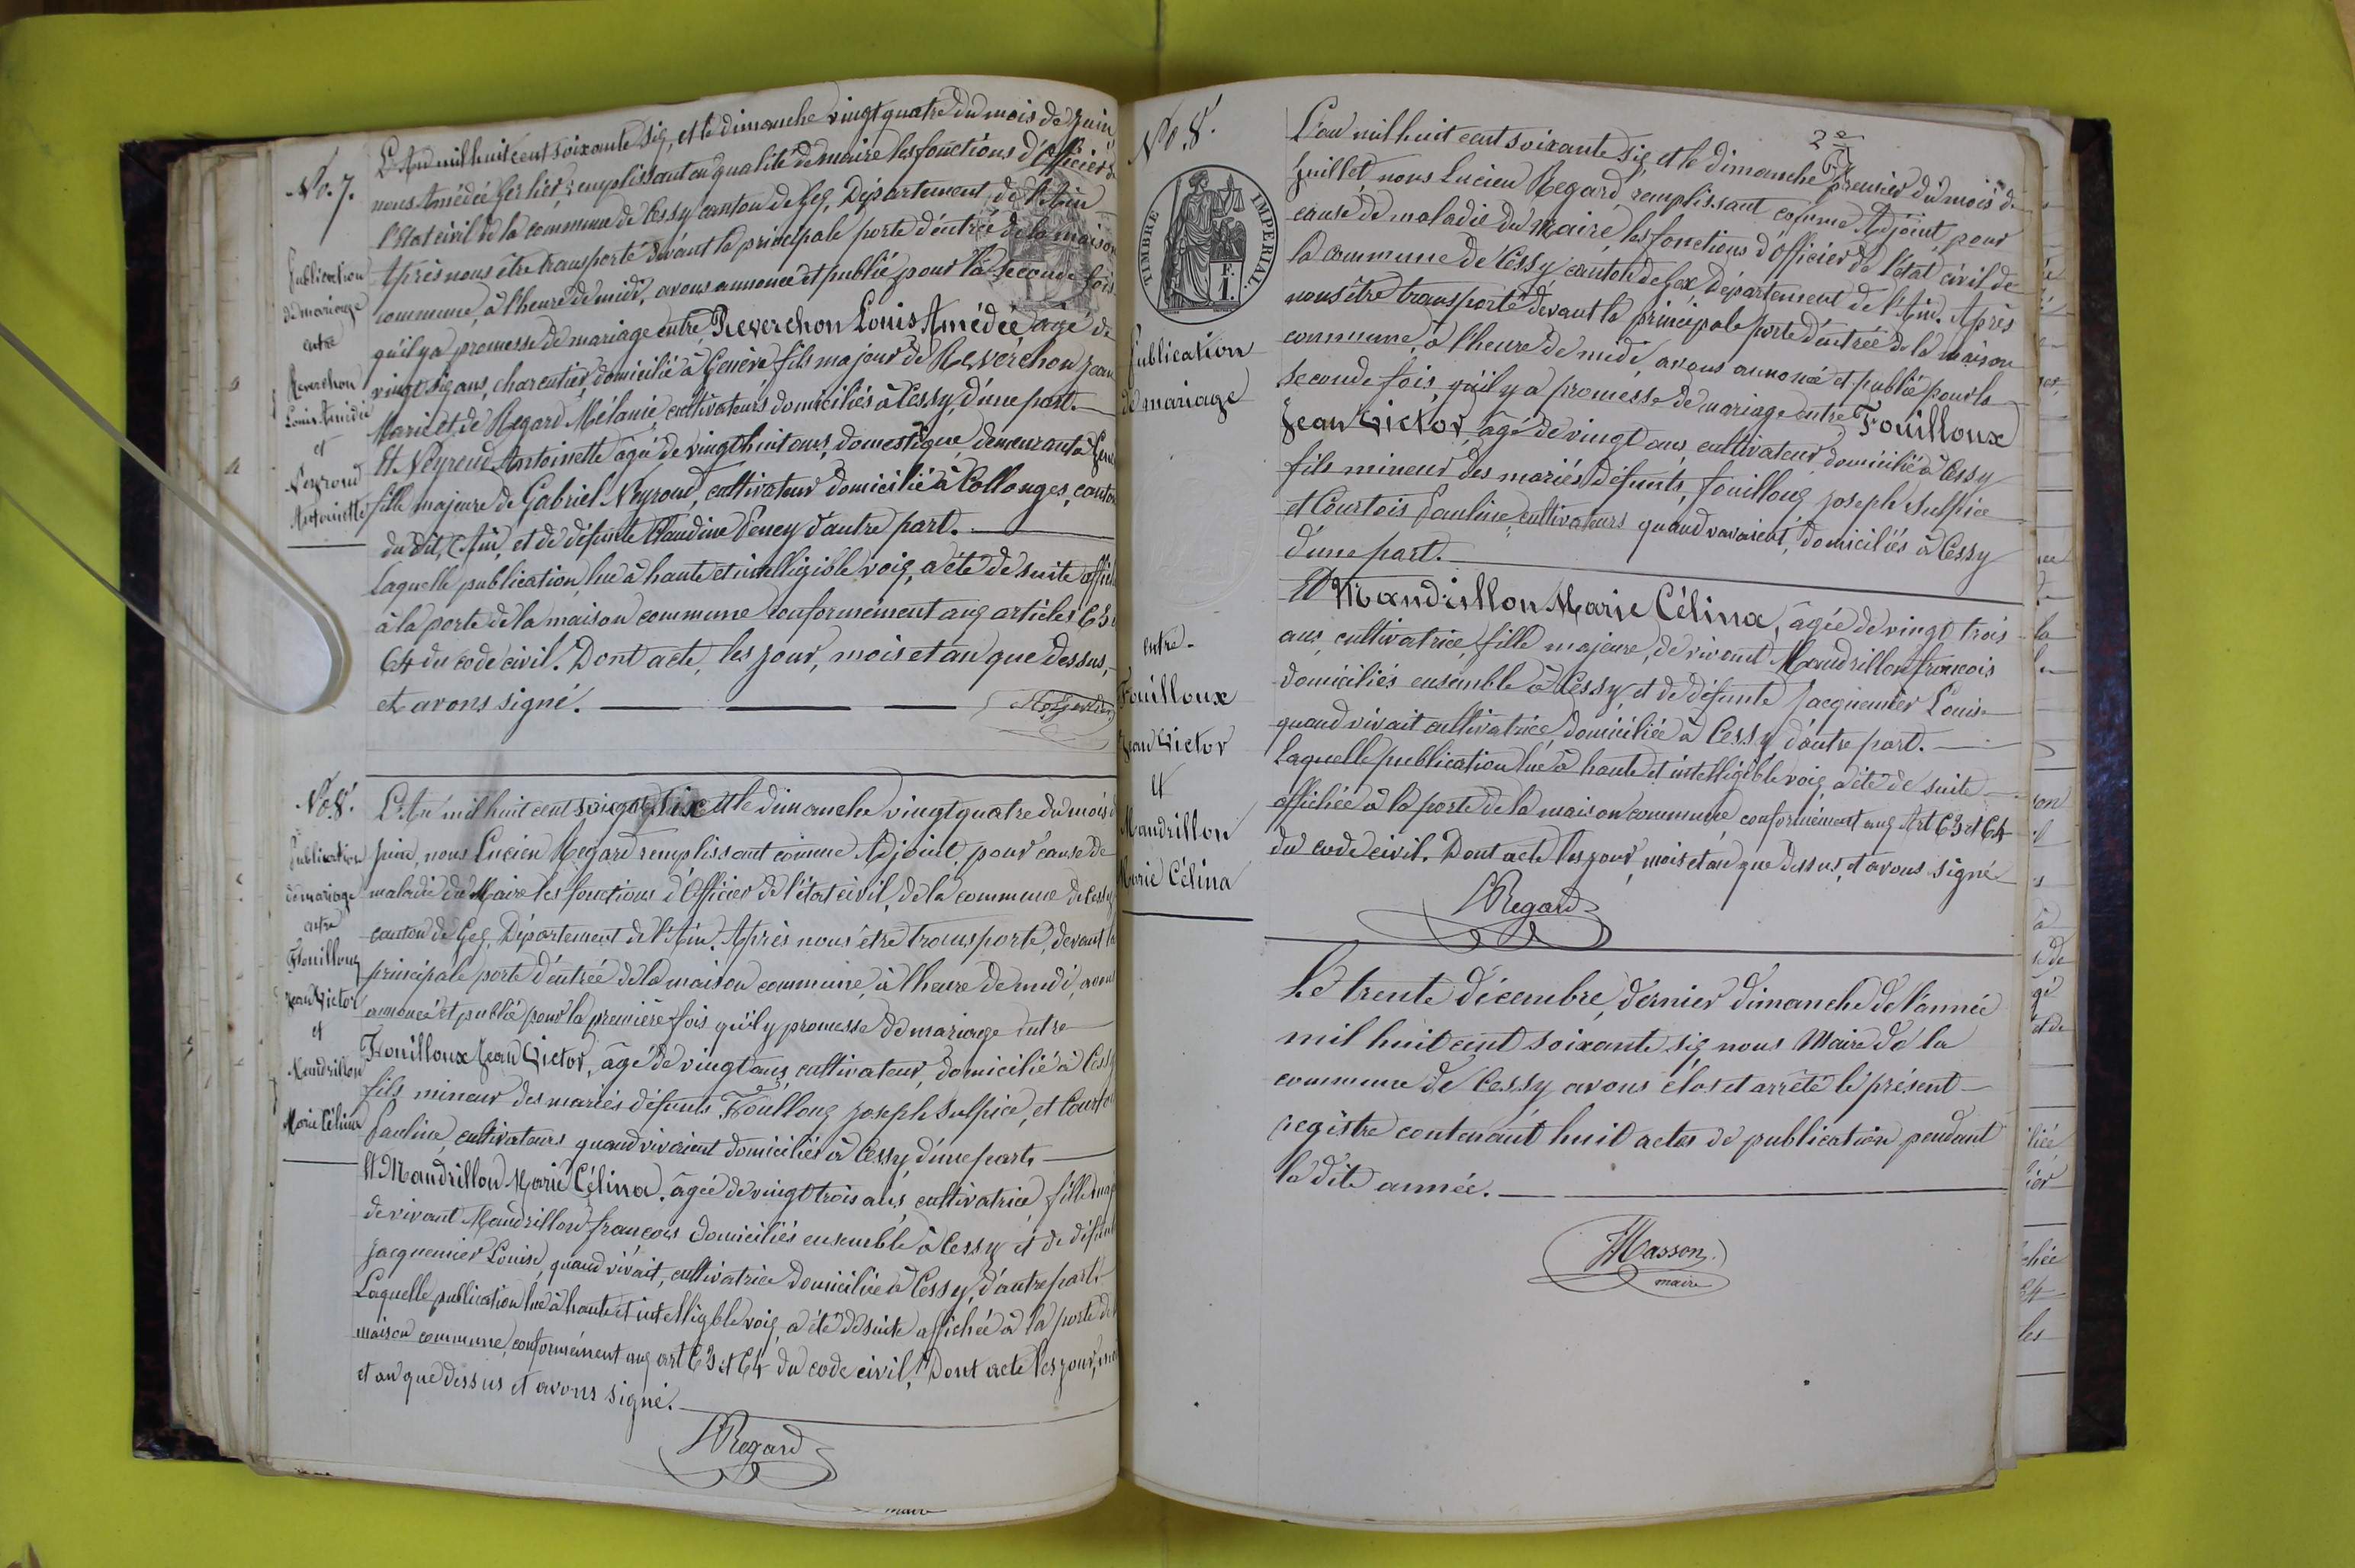 No. 7.
Publication
de mariage
entre
Reverchon
Louis Amédée
et
Neyroud
Antoinette
L'An mil huit cent soixante six, et le dimanche vingt quatre du mois de Juin
nous Amédée remplissant en qualité de maire les fonctions d'Officier de
l'état civil de la commune de Cessy canton de Gex, Département de l'Ain
Après nous être transporté devant la principale porte d'entrée de la maison
commune, à l'heure de midi, avons annoncé et publié pour la seconde fois
qu'il y a promesse de mariage entre Reverchon Louis Amédée, agé de
vingt six ans, charcutier, domicilié à Genève fils majeur de Reverchon Jean
Marie et de Regard Mélanie cultivateurs domiciliés à Cessy, d'une part.
Et Neyroud Antoinette âgé de vingt huit ans, domestique, demeurant à
fille majeure de Gabriel Neyroud, cultivateur domicilié à Collonges, canton
du dit, (Ain) et de défunte Claudine Peney d'autre part.
Laquelle publication, lue à haute et intelligible voix, a été de suite
à la porte de la maison commune conformément aux articles 63
64 du code civil. Dont acte, les jour, mois et an que dessus,
et avons signé.
No 8.
Publication
de mariage
entre
Fouilloux
Jean Victor
et
Mandrillon
Marie Célina
L'An mil huit cent soixante six et le dimanche vingt quatre du mois
Juin, nous Lucien Regard remplissant comme Adjoint, pour cause de
maladie du Maire les fonctions d'Officier de l'état civil, de la commune de Cessy
canton de Gex, Département de l'Ain. Après nous être transporté, devant la
principale porte d'entrée de la maison commune, à l'heure de midi, avons
annoncé et publié pour la première fois qu'il y promesse de mariage entre
Fouilloux Jean Victor, âgé de vingt ans, cultivateur, domicilié à Cessy
fils mineur des mariés défunts Fouilloux Joseph Sulpice, et
Pauline, cultivateurs quand vivaient domiciliés à Cessy, d'une part.
Et Mandrillon Marie Célina, âgée de vingt trois ans, cultivatrice, fille
de vivant Mandrillon françois domiciliés ensemble à Cessy et de
Jacquemier Louise, quand vivait, cultivatrice domiciliée à Cessy, d'autre part.
Laquelle publication lue à haute et intelligble voix, a été de suite affichée à la porte de
maison commune, conformément aux art 63 et 64 du code civil, Dont acte les jour,
et an que dessus et avons signé.
LRegard
maire
No. 8.
TIMBRE IMPERIAL.
F.
1.
Publication
de mariage
entre
Fouilloux
Jean Victor
et
Mandrillon
Marie Célina
L'an mil huit cent soixante six, et le dimanche premier du mois de
Juillet, nous Lucien Regard, remplissant comme Adjoint, pour
cause de maladie du Maire, les fonctions d'Officier de l'état civil de
la commune de Cessy, canton de Gex, Département de l'Ain. Après
nous être transporté devant la principale porte d'entrée de la maison
commune, à l'heure de midi, avons annoncé et publié pour la
seconde fois, qu'il y a promesse de mariage entre Fouilloux
Jean Victor, âgé de vingt ans, cultivateur, domicilié à Cessy
fils mineur des mariés défunts, fouilloux Joseph Sulpice
et Courtois Pauline, cultivateurs quand vivaient, domiciliés à Cessy
d'une part.
Et Mandrillon Marie Célina, âgée de vingt trois
ans, cultivatrice, fille majeure, de vivant Mandrillon françois
domiciliés ensemble à Cessy, et de défunte Jacquemier Louise
quand vivait cultivatrice domiciliée à Cessy, d'autre part.
Laquelle publication lue à haute et intelligible voix, a été de suite
affichée à la porte de la maison commune, conformément aux Art 63 et 64
du code civil. Dont acte les jour, mois et an que dessus, et avons signé
LRegard
Le trente décembre, dernier dimanche de l'année
mil huit cent soixante six, nous Maire de la
commune de Cessy avons clos et arrêté le présent
registre contenant huit actes de publication pendant
la dite année.
Masson
maire